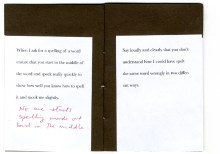 When I ask for a spelling of a word
ensure that you start in the middle of
the word and speak really quickly to
show how well you know how to spell
it and mock me slightly.
No one starts
spelling words out
loud in the middle
Say loudly and slowly that you don't
understand how I could have spelt
the same word wrongly in two differ-
ent ways.